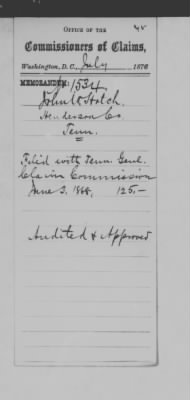 OFFICE OF THE
Commissioners of Claims,
Washington, D. C., July 1876
MEMORANDUM: 1534
John W Hatch.
Henderson Co.
Tenn.
Filed with Tenn. Genl.
Claim Commission
June 3. 1868, 125.—
Audited & Approved